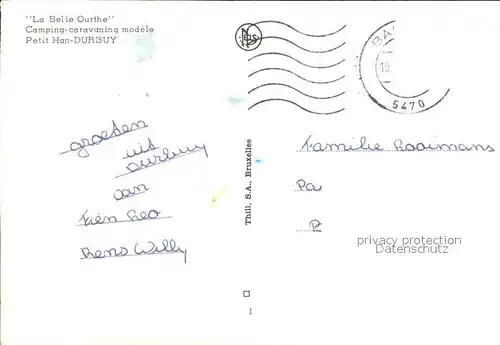 "La Belle Ourthe"
Camping-caravaning modèle
Petit Han-DURBUY
NELS
BA
18
5470
groeten
uit
Durbuy
van
Fien Leo
Rens Willy
Thill, S.A., Bruxelles
Familie Looimans
Pa
privacy protection
www.ansichtskartenversand.com
1